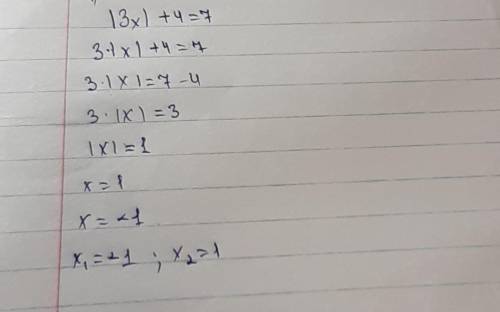 |3x| + 4 = 7
3·|x| + 4 = 7
3·|x| = 7 - 4
3·|x| = 3
|x| = 1
x = 1
x = -1
x₁ = -1 ; x₂ = 1